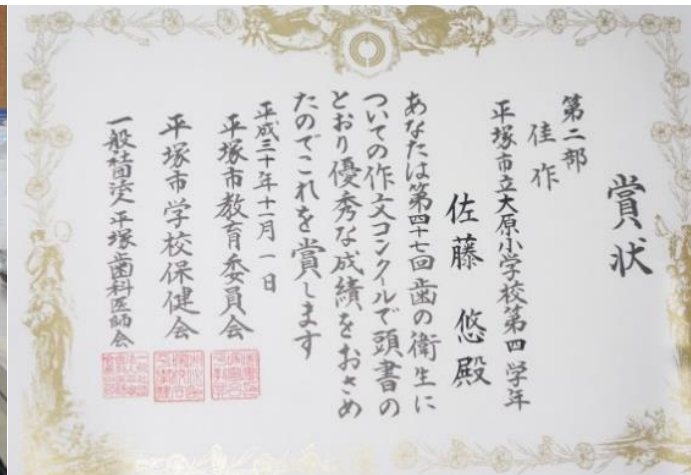 賞状
第二部
佳作
平塚市立大原小学校第四学年
佐藤 悠殿
あなたは第四十七回歯の衛生に
ついての作文コンクールで頭書の
とおり優秀な成績をおさめ
たのでこれを賞します
平成三十年十一月一日
平塚市教育委員会
平塚市学校保健会
一般社団法人平塚歯科医師会